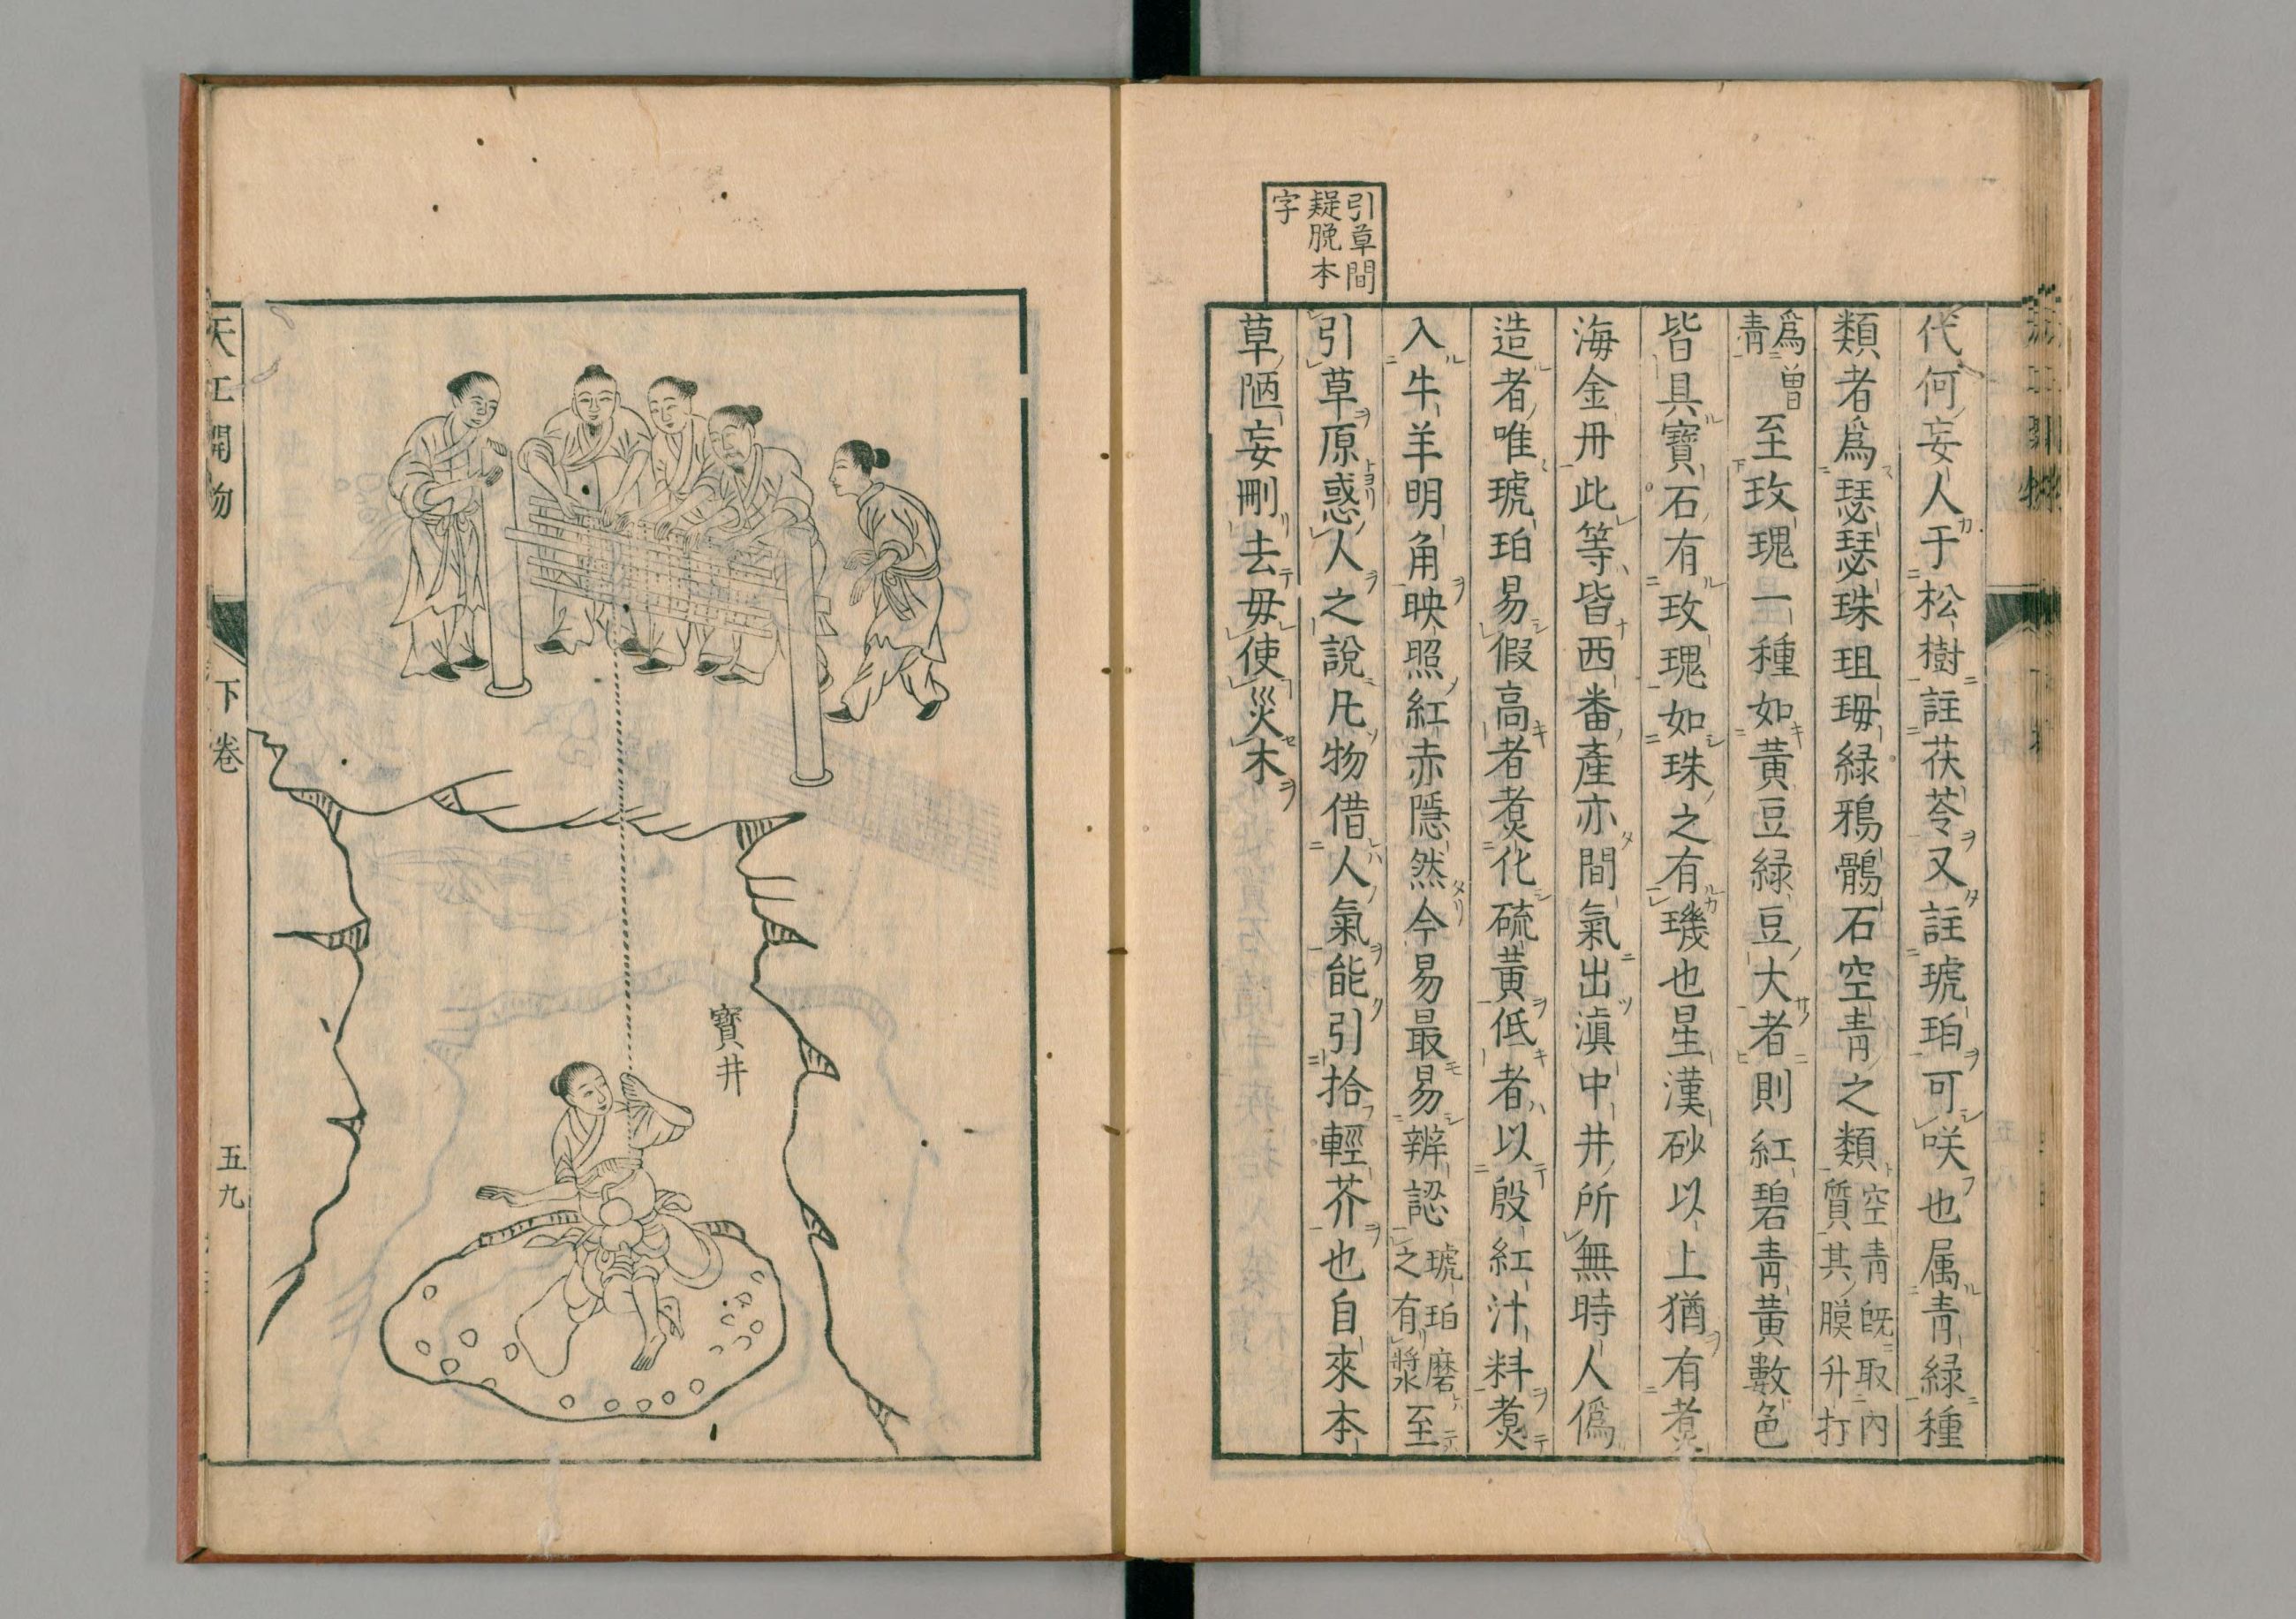 引草間
疑脱本
字
代何妄人于松樹註茯苓又註琥珀可咲也属青緑種
類者爲瑟瑟珠珇珻緑鴉鶻石空青之類空青既取内
質其膜升打
爲曾
青至玫瑰一種如黄豆緑豆大者則紅碧青黄數色
皆具寶石有玫瑰如珠之有璣也星漢砂以上猶有煮
海金丹此等皆西番產亦間氣出滇中井所無時人僞
造者唯琥珀易假高者煮化硫黄低者以殷紅汁料煮
入牛羊明角映照紅赤隱然今易最易辨認琥珀磨
之有漿至
引草原惑人之說凡物借人氣能引拾輕芥也自來本
草陋妄刪去毋使災木
寶井
天工開物
下卷
五九